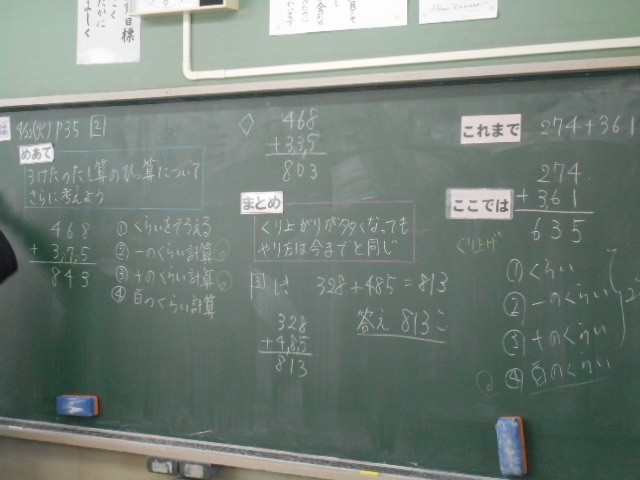 目標
P35 2
めあて
3けたのたし算のひっ算について
さらに考えよう
468
+375
843
①くらいをそろえる
②一のくらい計算
③十のくらい計算
④百のくらい計算
468
+335
803
まとめ
くり上がりが多くなっても
やり方は今までと同じ
3 しき 328+485=813
328
+485
813
答え 813こ
これまで 274+361
274
+361
635
ここでは
くり上げ
①くらい
②一のくらい
③十のくらい
④百のくらい